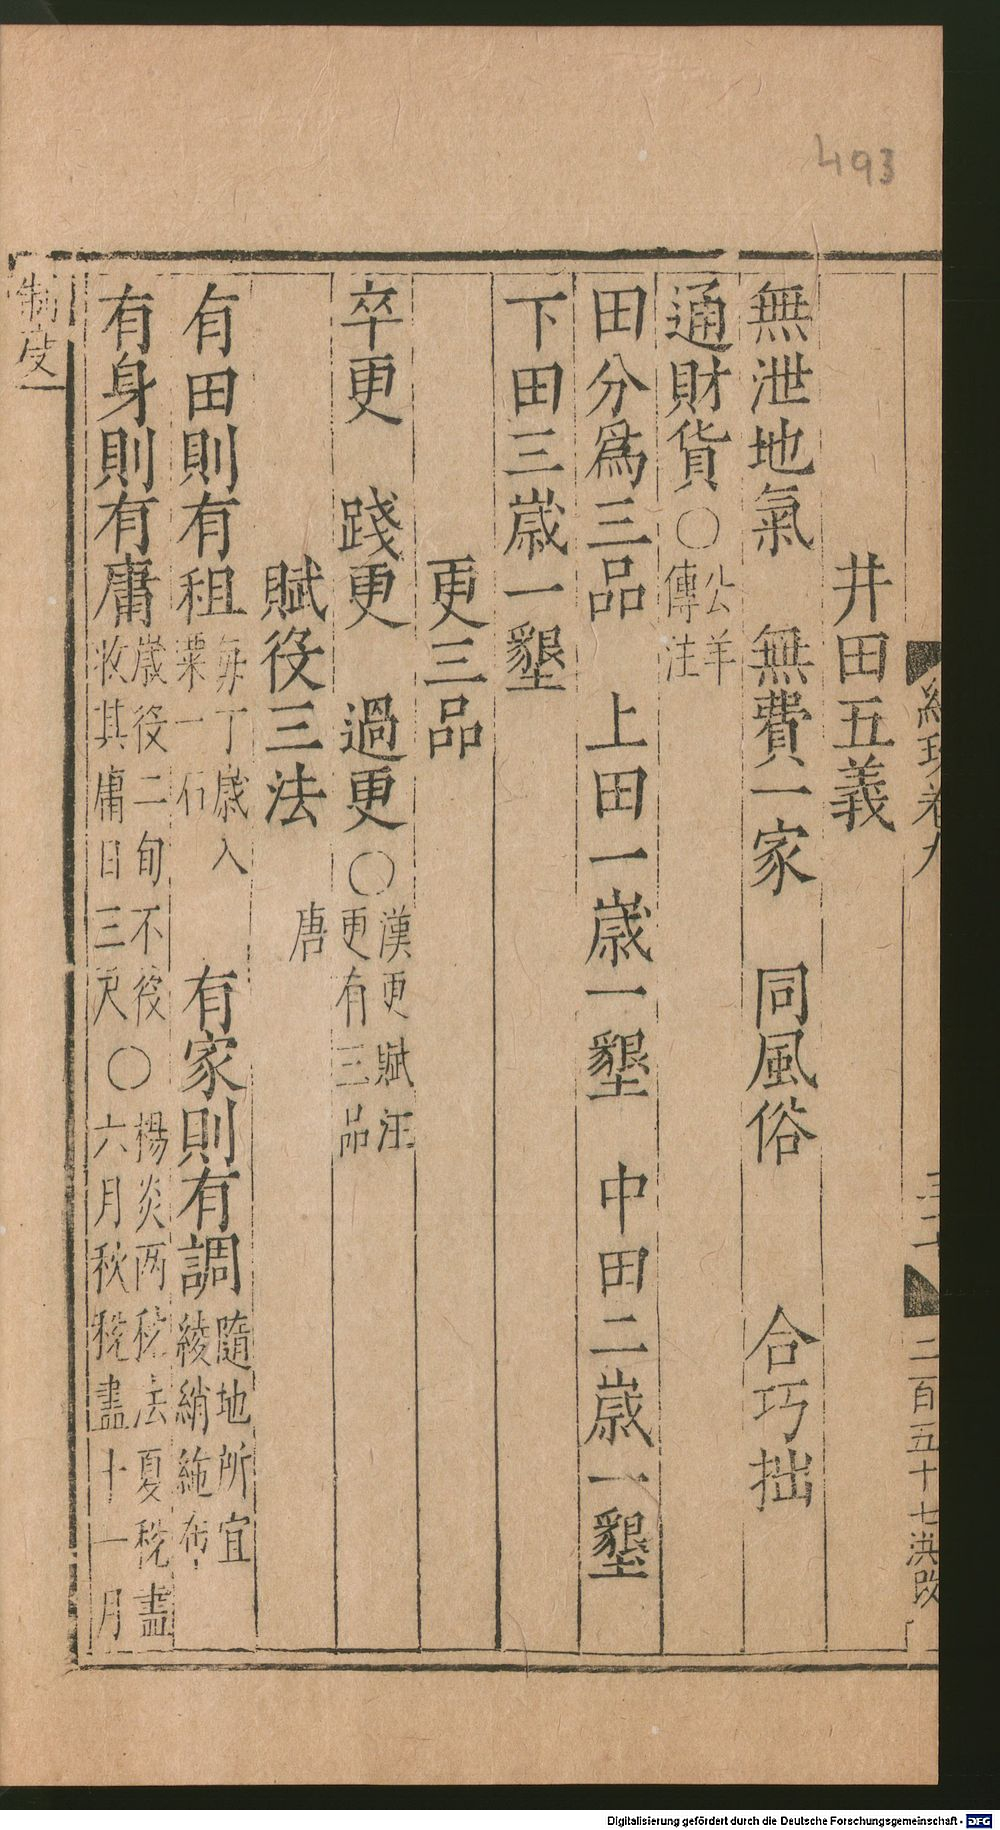 493
井田五義
無泄地氣　無費一家　同風俗　合巧拙
通財貨○公羊
傳注
田分爲三品　上田一歲一墾　中田二歲一墾
下田三歲一墾
更三品
卒更　踐更　過更○漢更賦注
更有三品
賦役三法　唐
有田則有租每丁歲入
粟一石　有家則有調隨地所宜
綾綃絁布
有身則有庸歲役二旬不役
收其庸日三尺○楊炎两稅法夏稅盡
六月秋稅盡十一月
制度
卷九
二百五十七洪改
Digitalisierung gefördert durch die Deutsche Forschungsgemeinschaft - DFG